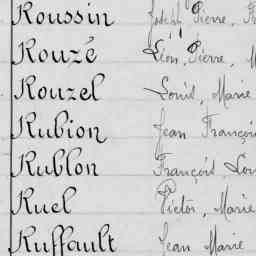 Roussin Joseph Pierre, Fr
Rouzé Léon, Pierre, M
Rouzel Louis, Marie
Rubion Jean François
Rublon François, Lou
Ruel Victor, Marie
Ruffault Jean Marie